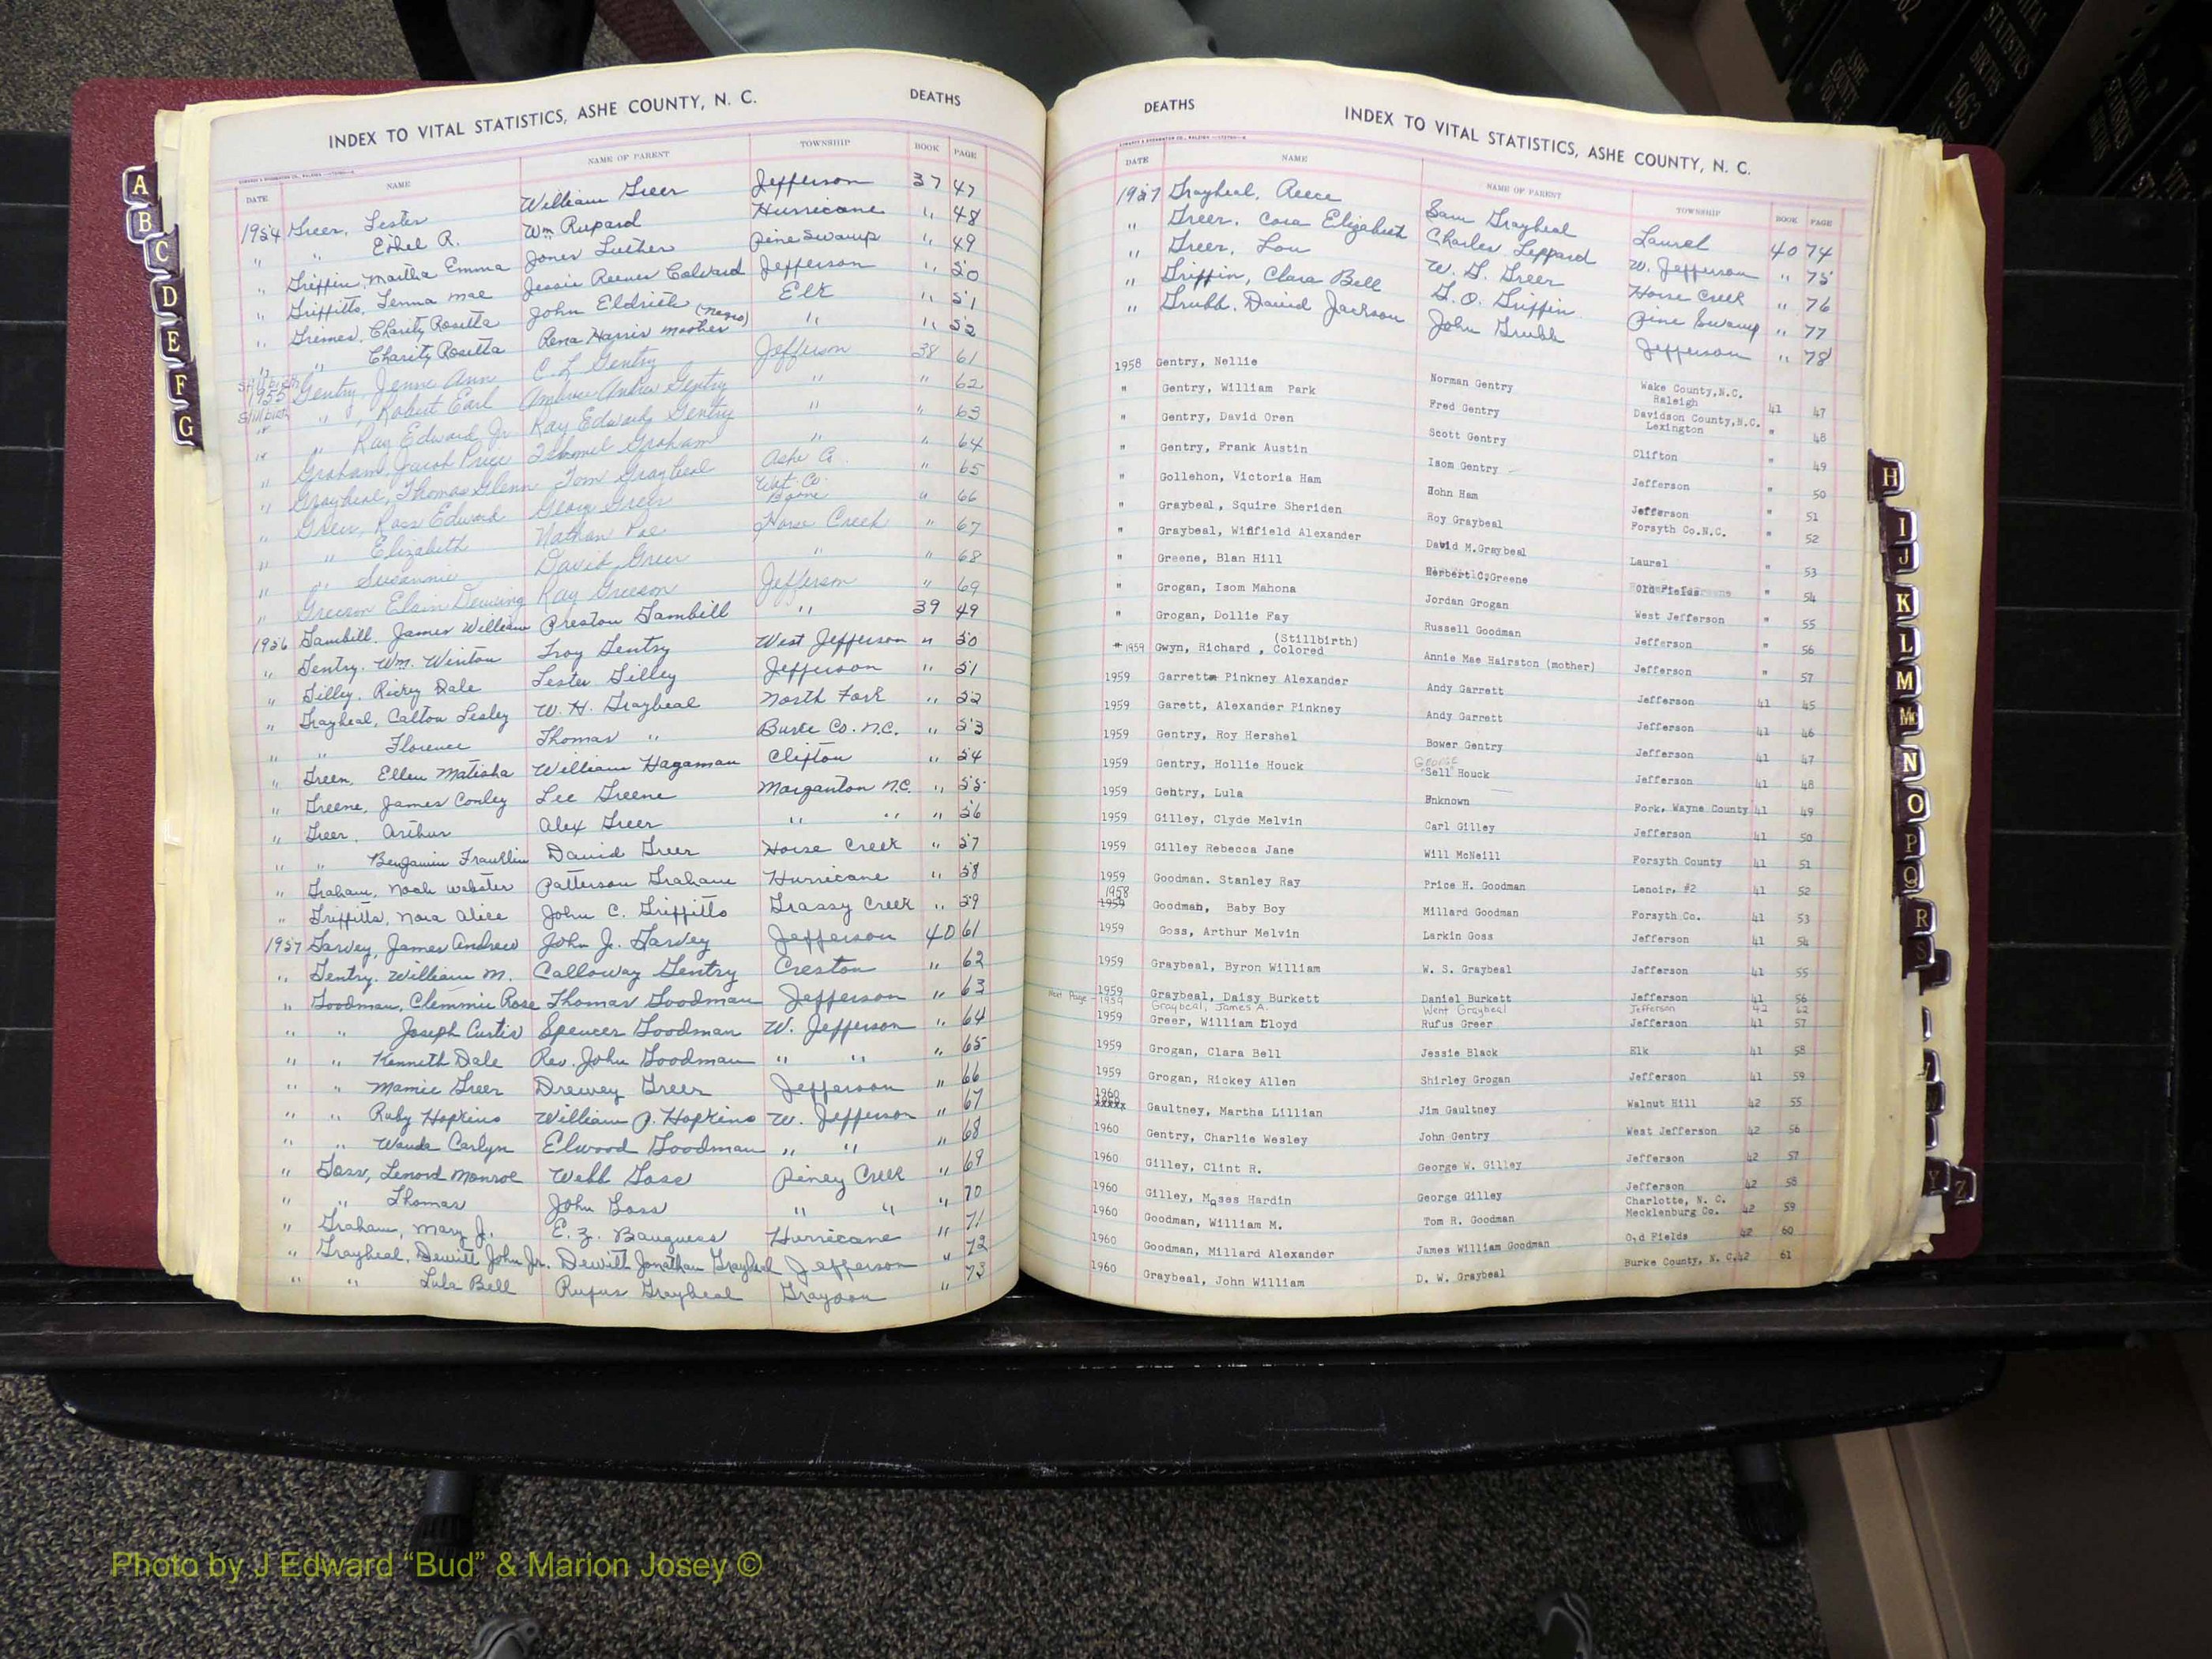 INDEX TO VITAL STATISTICS, ASHE COUNTY, N. C. DEATHS
DATE NAME NAME OF PARENT TOWNSHIP BOOK PAGE
1954 Greer, Lester William Greer Jefferson 37 47
" " Ethel R. Wm Rupard Hurricane " 48
" Griffin, Martha Emma Jones Luther Pine Swamp " 49
" Griffitts, Lenna Mae Jessie Reeves Calvard Jefferson " 50
" Grimes, Charity Rosetta John Eldrith Elk " 51
" " Charity Rosetta Rena Harris mother (Negro) " " 52
Stillbirth 1955 Gentry, Jenne Ann C. L. Gentry Jefferson 38 61
Stillbirth " " , Robert Earl Ambrose Andrew Gentry " " 62
" " Ray Edward Jr Ray Edward Gentry " " 63
" Graham, Jacob Price Graham " " 64
" Graybeal, Thomas Glenn Tom Graybeal Ashe Co. " 65
" Greer, Ross Edward Greer Wat. Co. Boone " 66
" " Elizabeth Nathan Poe Horse Creek " 67
" " Susannie David Greer " " 68
" Greeson Elain Ray Greeson Jefferson " 69
1956 Gambill, James William Preston Gambill " 39 49
" Gentry, Wm. Winton Troy Gentry West Jefferson " 50
" Gilley, Rickey Dale Lester Gilley Jefferson " 51
" Graybeal, Calton Lesley W. H. Graybeal North Fork " 52
" " Florence Thomas " Burke Co. N.C. " 53
" Green, Ellen Matisha William Hagaman Clifton " 54
" Greene, James Conley Lee Greene Morganton N.C. " 55
" Greer, Arthur Alex Greer " " " 56
" " Benjamin Franklin David Greer Horse Creek " 57
" Graham, Noah Webster Patterson Graham Hurricane " 58
" Griffitts, Nora Alice John C. Griffitts Grassy Creek " 59
1957 Garvey, James Andrew John J. Garvey Jefferson 40 61
" Gentry, William M. Calloway Gentry Creston " 62
" Goodman, Clemmie Rose Thomas Goodman Jefferson " 63
" " Joseph Curtis Spencer Goodman W. Jefferson " 64
" " Kenneth Dale Rev. John Goodman " " " 65
" " Mamie Greer Drewey Greer Jefferson " 66
" " Ruby Hopkins William P. Hopkins W. Jefferson " 67
" " Wanda Carlyn Elwood Goodman " " " 68
" Goss, Lenord Monroe Webb Goss Piney Creek " 69
" " Thomas John Goss " " " 70
" Graham, Mary J. E. Z. Bauguess Hurricane " 71
" Graybeal, Dewitt John Jr. Dewitt Jonathan Graybeal Jefferson " 72
" " Lula Bell Rufus Graybeal Grayson " 73
DEATHS INDEX TO VITAL STATISTICS, ASHE COUNTY, N. C.
DATE NAME NAME OF PARENT TOWNSHIP BOOK PAGE
1957 Graybeal, Reece Sam Graybeal Laurel 40 74
" Greer, Cora Elizabeth Charles Leppard W. Jefferson " 75
" Greer, Lou W. G. Greer Horse Creek " 76
" Griffin, Clara Bell G. O. Griffin Pine Swamp " 77
" Grubb, David Jackson John Grubb Jefferson " 78
1958 Gentry, Nellie Norman Gentry Wake County, N.C. Raleigh 41 47
" Gentry, William Park Fred Gentry Davidson County, N.C. Lexington " 48
" Gentry, David Oren Scott Gentry Clifton " 49
" Gentry, Frank Austin Isom Gentry Jefferson " 50
" Gollehon, Victoria Ham John Ham Jefferson " 51
" Graybeal, Squire Sheriden Roy Graybeal Forsyth Co.N.C. " 52
" Graybeal, Winfield Alexander David M.Graybeal Laurel " 53
" Greene, Blan Hill Herbert C.Greene Old Fields " 54
" Grogan, Isom Mahona Jordan Grogan West Jefferson " 55
" Grogan, Dollie Fay Russell Goodman Jefferson " 56
1959 Gwyn, Richard , (Stillbirth) Colored Annie Mae Hairston (mother) Jefferson " 57
1959 Garrett Pinkney Alexander Andy Garrett Jefferson 41 45
1959 Garett, Alexander Pinkney Andy Garrett Jefferson 41 46
1959 Gentry, Roy Hershel Bower Gentry Jefferson 41 47
1959 Gentry, Hollie Houck George "Sell" Houck Jefferson 41 48
1959 Gentry, Lula Unknown Fork, Wayne County 41 49
1959 Gilley, Clyde Melvin Carl Gilley Jefferson 41 50
1959 Gilley Rebecca Jane Will McNeill Forsyth County 41 51
1959 Goodman. Stanley Ray Price H. Goodman Lenoir, #2 41 52
1958 1959 Goodman, Baby Boy Millard Goodman Forsyth Co. 41 53
1959 Goss, Arthur Melvin Larkin Goss Jefferson 41 54
1959 Graybeal, Byron William W. S. Graybeal Jefferson 41 55
1959 Graybeal, Daisy Burkett Daniel Burkett Jefferson 41 56
Next Page - 1959 Graybeal, James A. Went Graybeal Jefferson 42 62
1959 Greer, William Lloyd Rufus Greer Jefferson 41 57
1959 Grogan, Clara Bell Jessie Black Elk 41 58
1959 Grogan, Rickey Allen Shirley Grogan Jefferson 41 59
1960 xxxxx Gaultney, Martha Lillian Jim Gaultney Walnut Hill 42 55
1960 Gentry, Charlie Wesley John Gentry West Jefferson 42 56
1960 Gilley, Clint R. George W. Gilley Jefferson 42 57
1960 Gilley, Moses Hardin George Gilley Jefferson 42 58
1960 Goodman, William M. Tom R. Goodman Charlotte, N. C. Mecklenburg Co. 42 59
1960 Goodman, Millard Alexander James William Goodman Old Fields 42 60
1960 Graybeal, John William D. W. Graybeal Burke County, N. C. 42 61
A
B
C
D
E
F
G
H
I
J
K
L
M
Mc
N
O
P
Q
R
S
Y
Z
VITAL STATISTICS BIRTHS 1963
ASHE COUNTY
Photo by J Edward “Bud” & Marion Josey ©